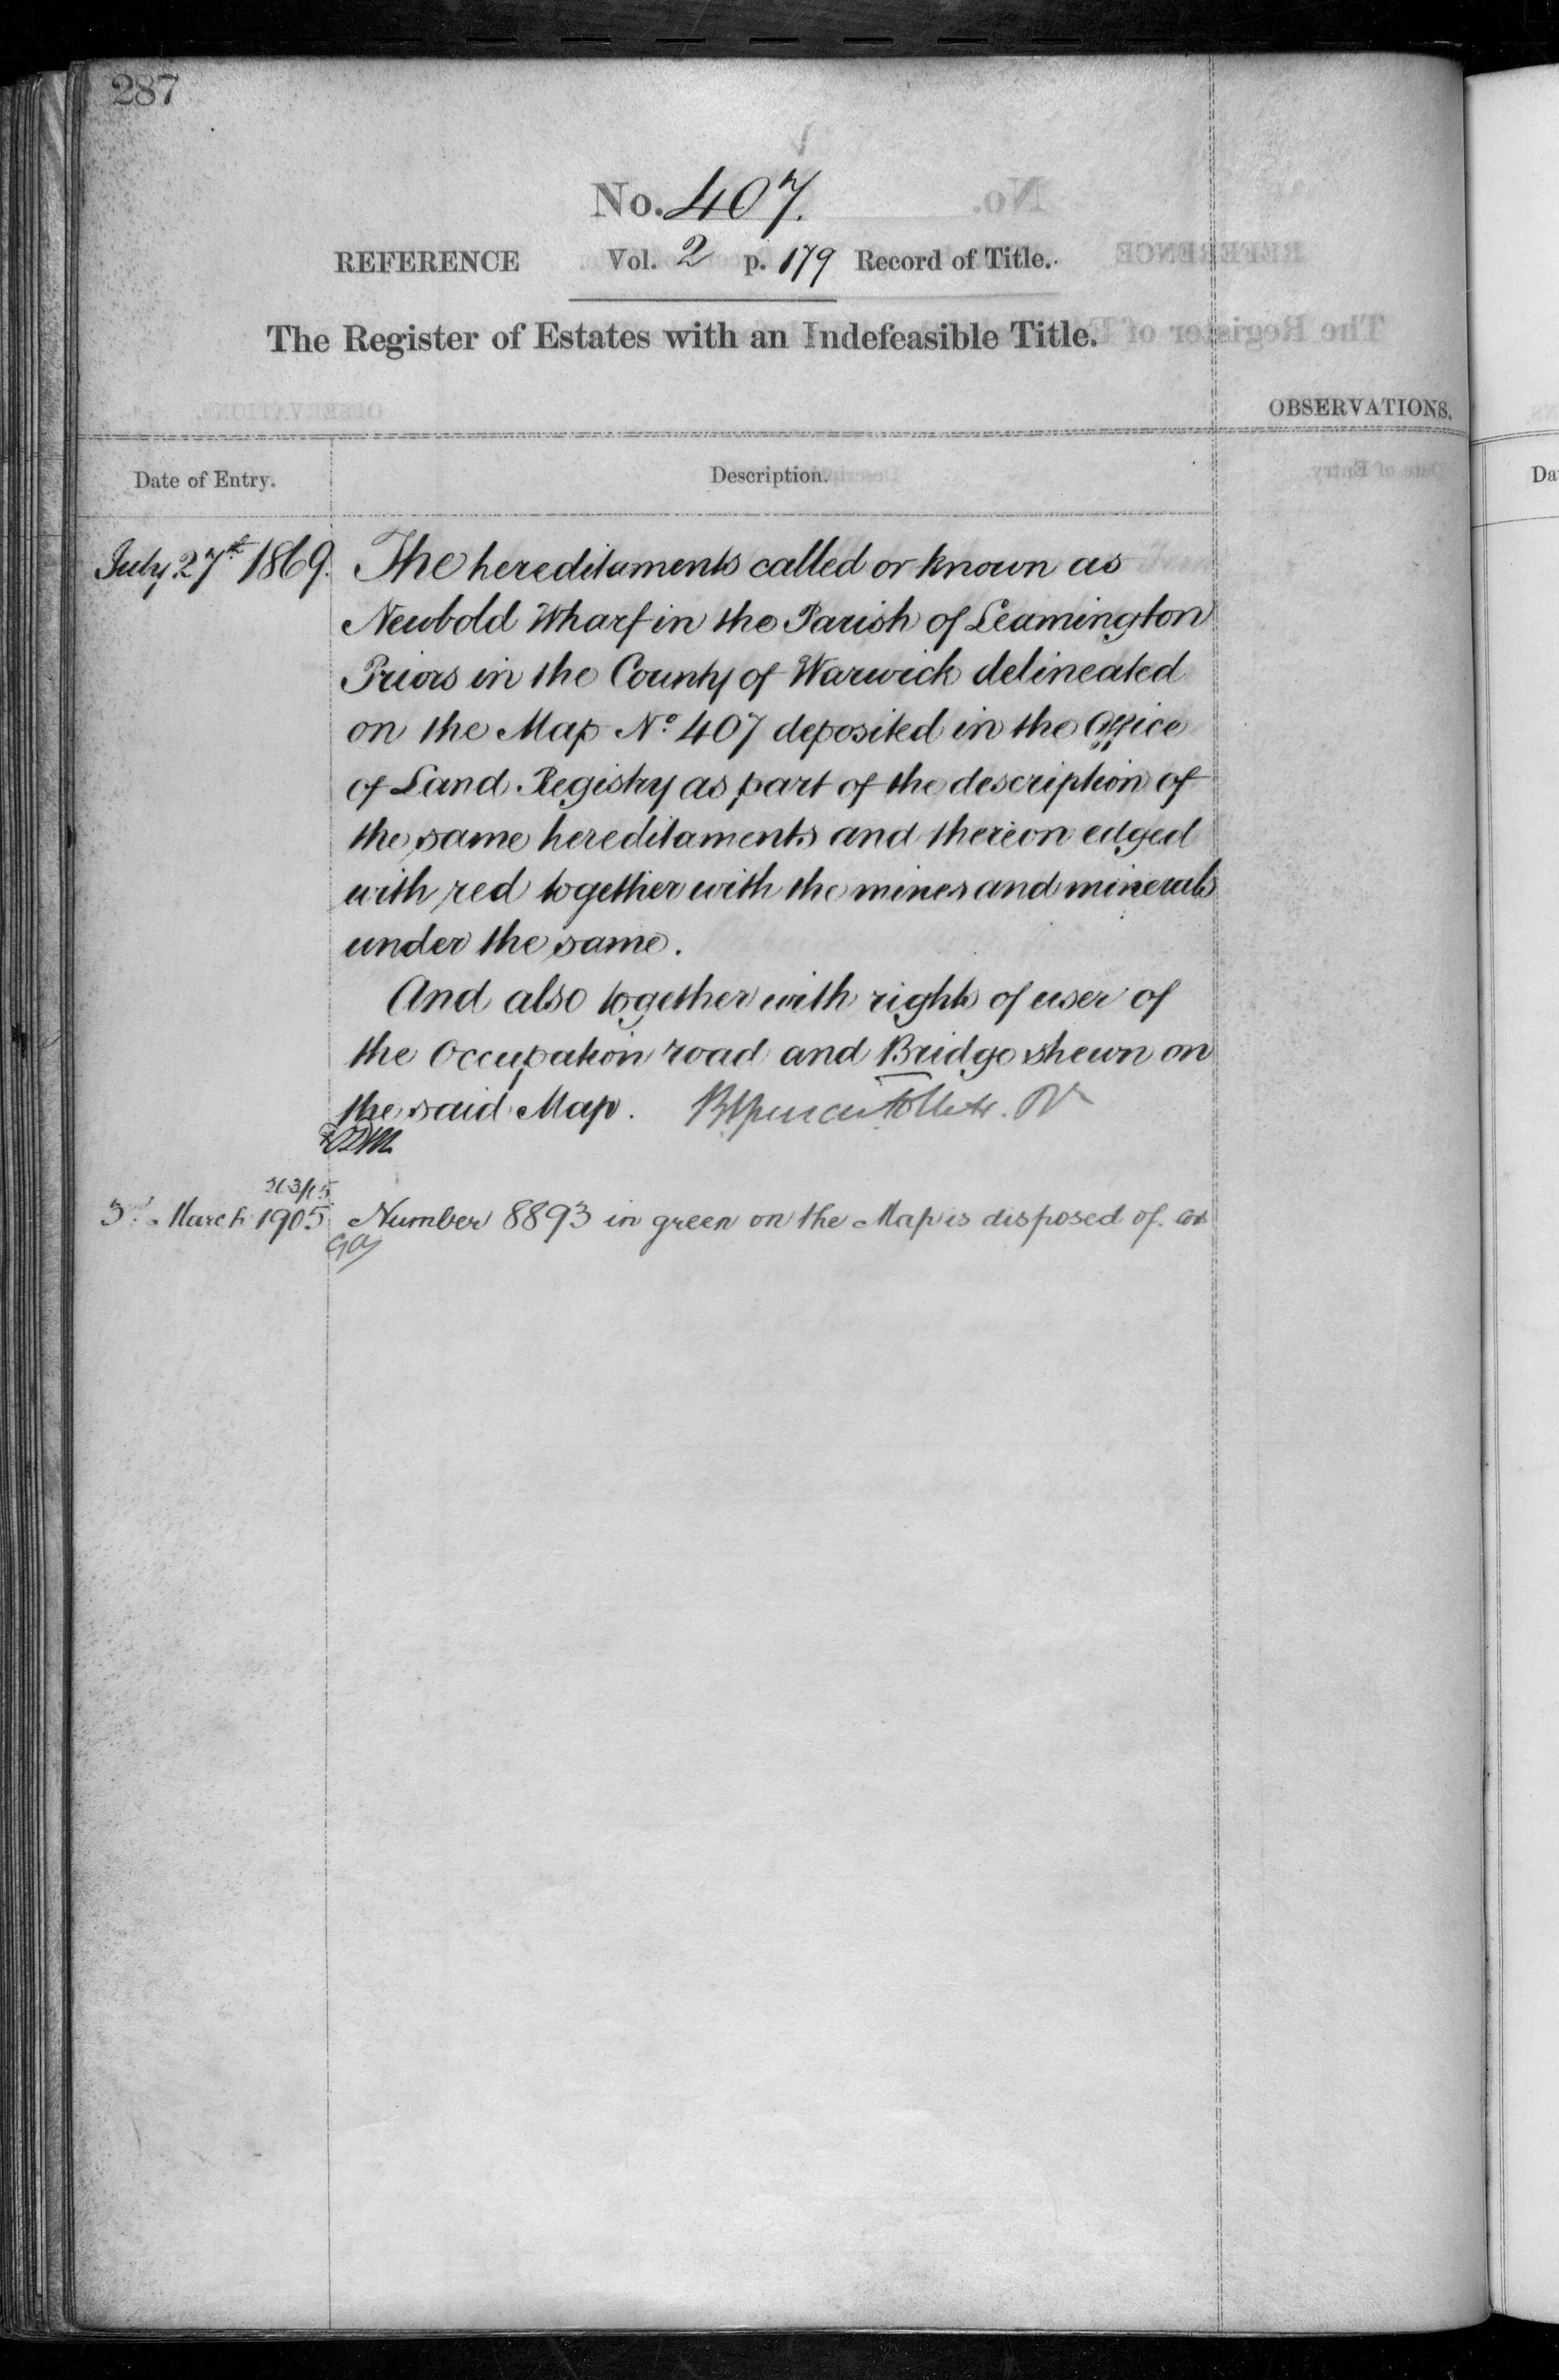 287
No. 407.
REFERENCE Vol. 2 p. 179 Record of Title.
The Register of Estates with an Indefeasible Title.
OBSERVATIONS.
Date of Entry. Description.
July 27th 1869. The hereditaments called or known as
Newbold Wharf in the Parish of Leamington
Priors in the County of Warwick delineated
on the Map No. 407 deposited in the Office
of Land Registry as part of the description of
the same hereditaments and thereon edged
with red together with the mines and minerals
under the same.
And also together with rights of user of
the Occupation road and Bridge shewn on
the said Map.
3rd March 1905 Number 8893 in green on the Map is disposed of.
Da